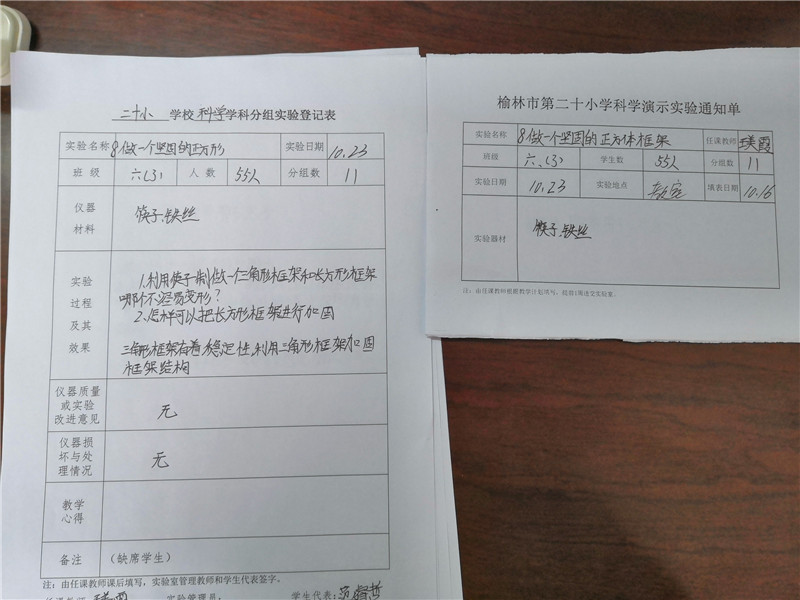 二十小 学校 科学 学科分组实验登记表
实验名称 8做一个坚固的正方形 实验日期 10.23
班级 六(3) 人数 55人 分组数 11
仪器材料 筷子.铁丝
实验过程及其效果
1.利用筷子制做一个三角形框架和长方形框架
哪个不容易变形?
2.怎样可以把长方形框架进行加固
三角形框架有着稳定性,利用三角形框架加固
框架结构
仪器质量或实验改进意见 无
仪器损坏与处理情况 无
教学心得
备注 (缺席学生)
注:由任课教师课后填写,实验室管理教师和学生代表签字。
任课教师 实验室管理员: 学生代表:
榆林市第二十小学科学演示实验通知单
实验名称 8做一个坚固的正方体框架 任课教师
班级 六.(3) 学生数 55人 分组数 11
实验日期 10.23 实验地点 填表日期 10.16
实验器材 筷子.铁丝
注:由任课教师根据教学计划填写,提前1周送交实验室。